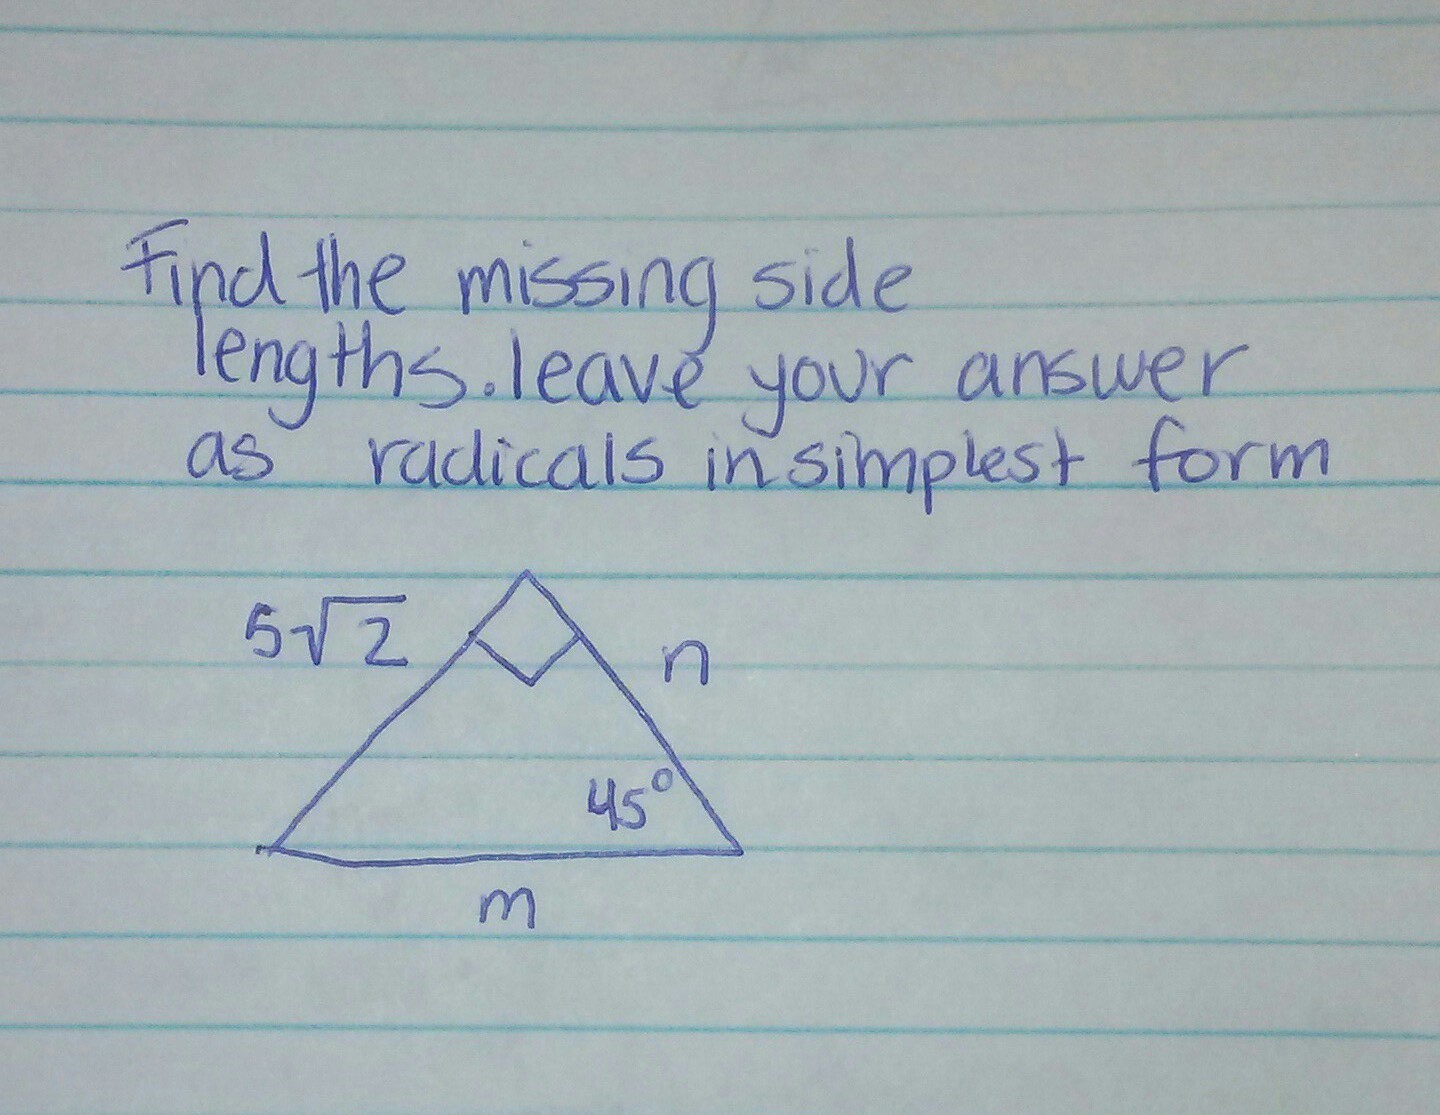 Find the missing side
lengths. leave your answer
as radicals in simplest form
5√2
n
45°
m